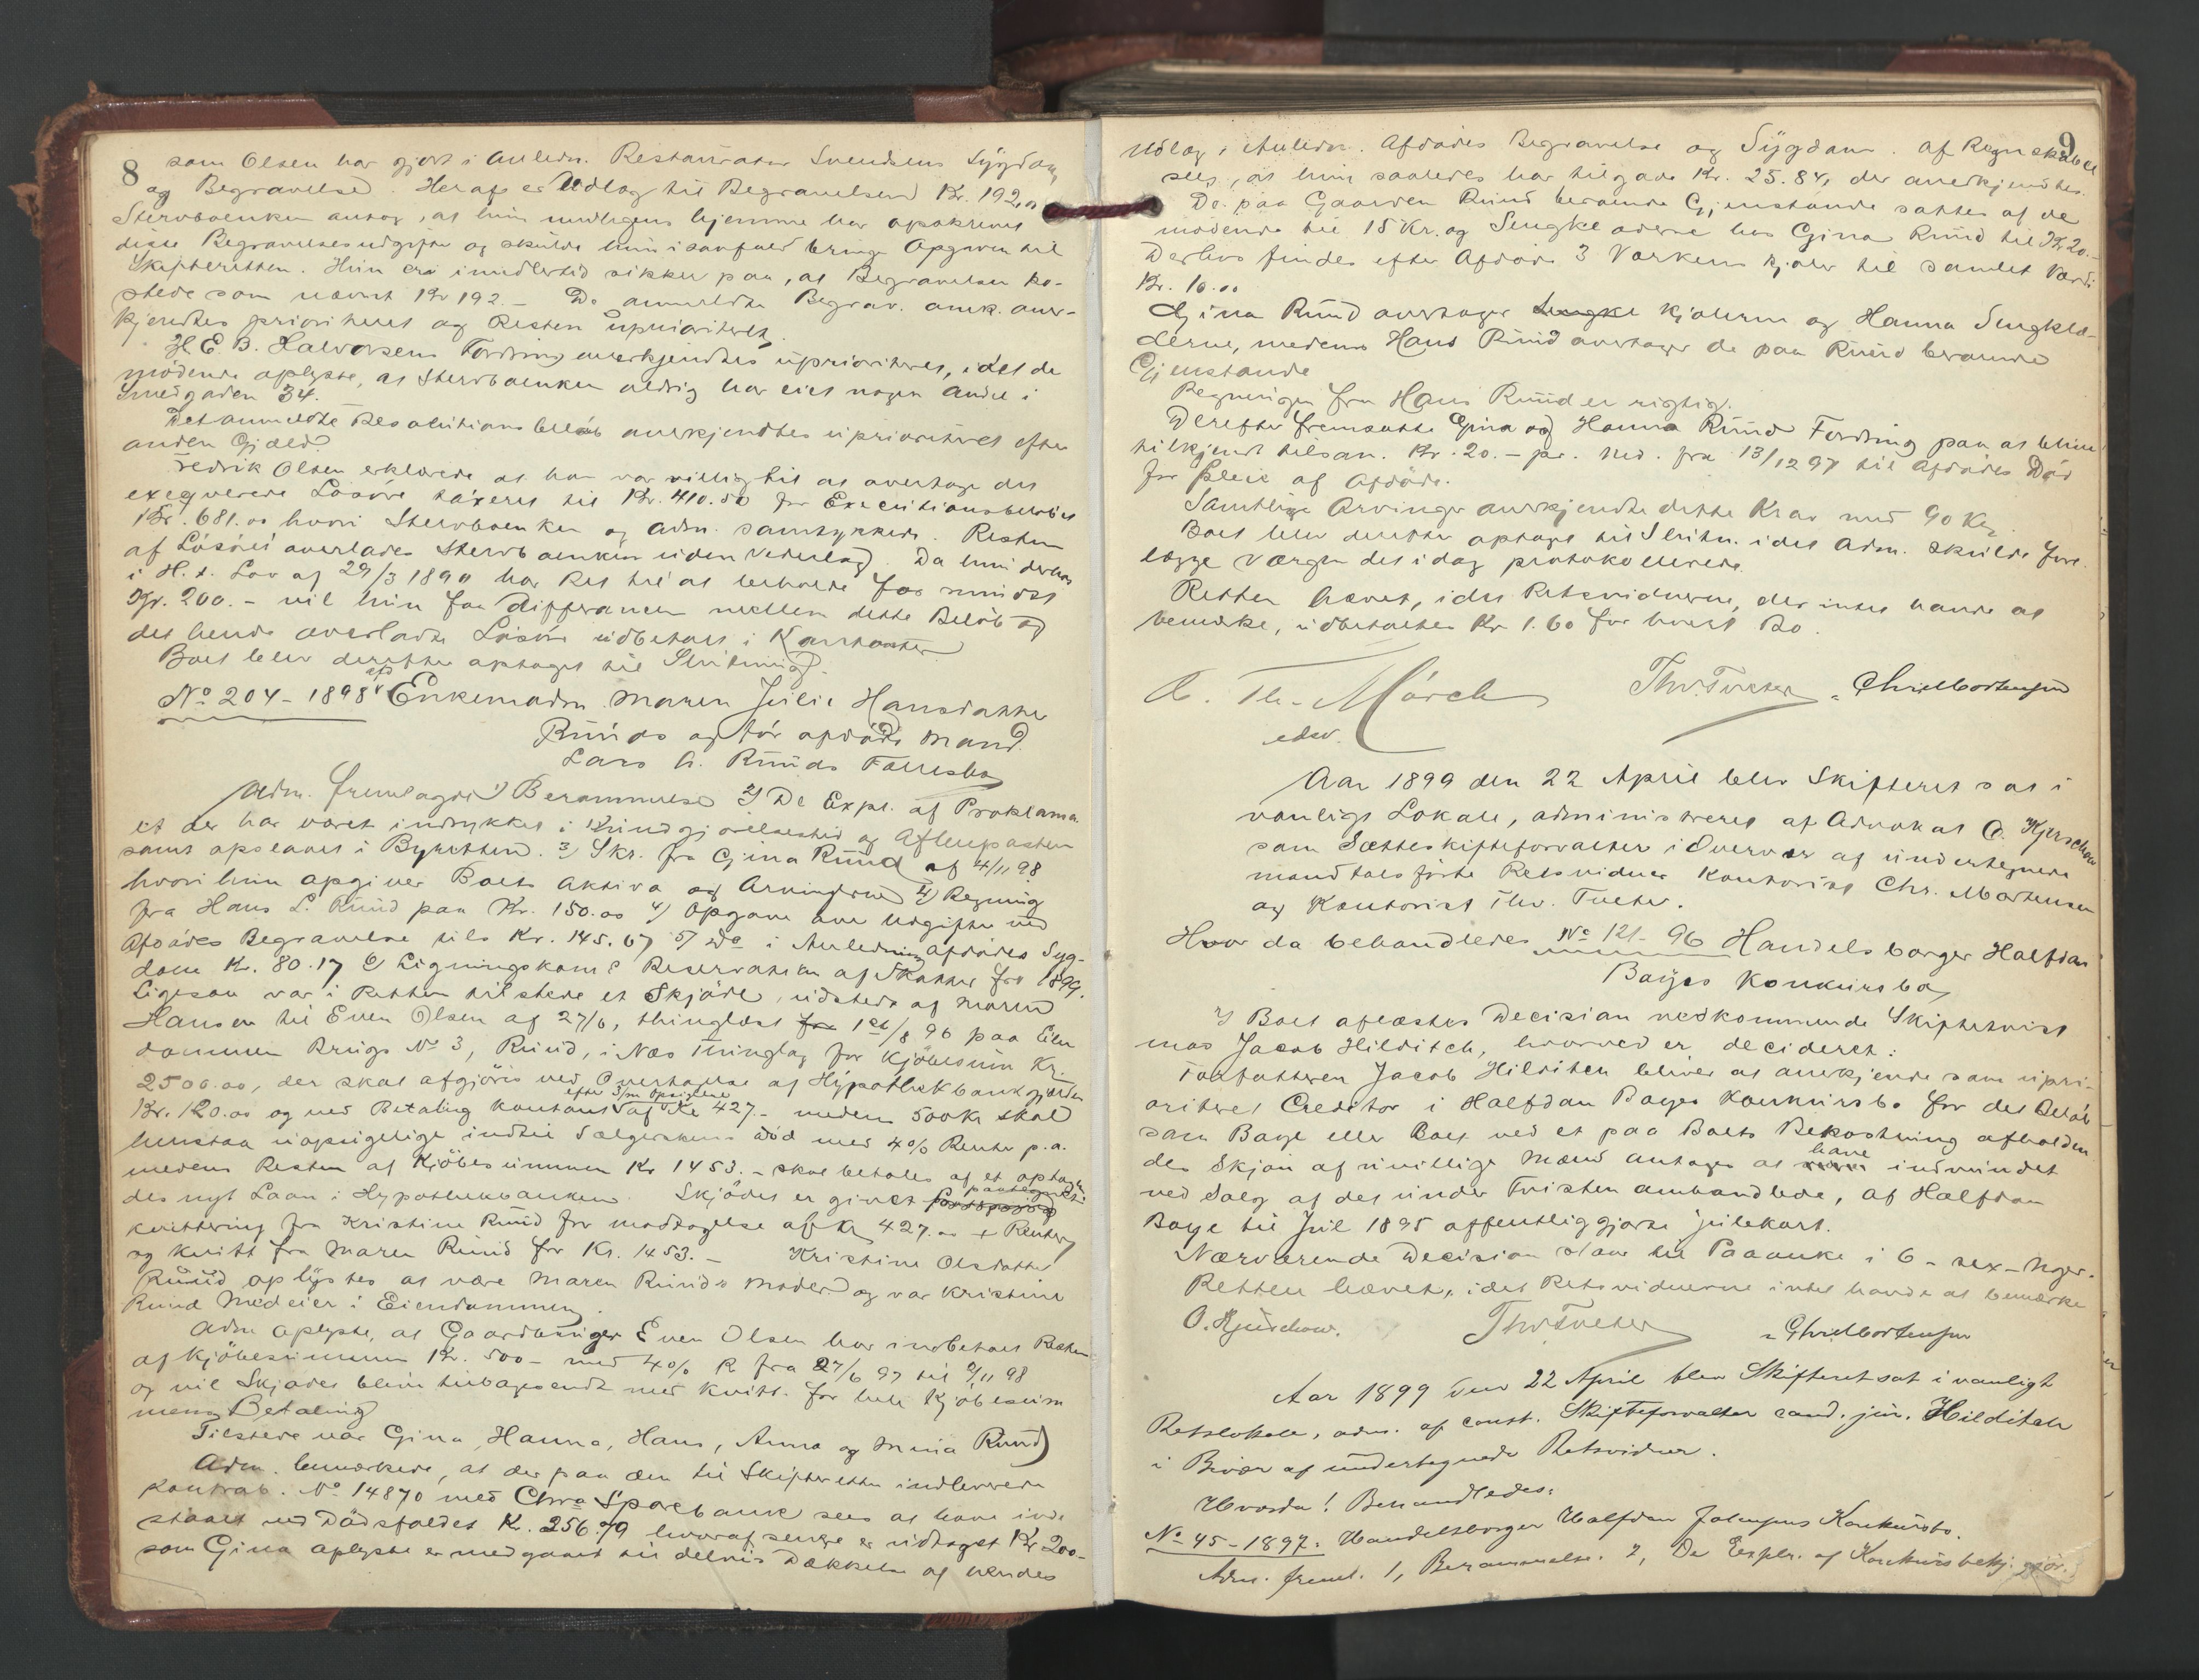 8
som Olsen har gjort i Anledn. Restauratør Svendsens Sygdom
og Begravelse. Heraf er Udlæg til Begravelsen Kr. 192.00
Stervboenken antog, at hun muligens hjemme har opskrevet
disse Begravelsesudgifter og skulde hun i saafald bringe Opgaven til
Skifteretten. Hun er imidlertid sikker paa, at Begravelsen ko-
stede som nævnt Kr 192.- De anmeldte Begrav. omk. aner-
kjendtes prioriteret og Resten uprioriteret.
H E B. Halvorsens Fordring anerkjendtes uprioriteret, idet de
mødende oplyste, at Stervboenken aldrig har eiet nogen Andel i
Smedgaden 34.
Det anmeldte Resolutionsbeløb anerkjendtes uprioriteret efter
anden Gjæld.
Fredrik Olsen erklærede at han var villig til at overtage det
exeqverede Løsøre taxeret til Kr. 410.50 for Executionsbeløbet
Kr. 681.00 hvori Stervboenken og adm. samtykkede. Resten
af Løsøret overlades Stervboenken uden Vederlag. Da hun derhos
i H. t. Lov af 29/3 1890 har Ret til at beholde Løs mindst
Kr. 200.- vil hun faa Differancen mellem dette Beløb og
det hende overladte Løsøre udbetalt i Kontanter
Boet blev derefter optaget til Slutning.
No 204-1898 afd Enkemadm Maren Julie Hansdatter
Ruuds og før afdøde Mand
Lars H. Ruuds Fællesbo
Adm. fremlagde 1) Berammelse 2) De Expl. af Proklama
et der har været indrykket i Kundgjørelsestid og Aftenposten
samt opslaaet i Byretten. 3) Skr. fra Gina Ruud af 4/11 98
hvori hun opgiver Boets Aktiva og Arvingerne 4) Regning
fra Hans L. Ruud paa Kr. 150.00 4) Opgave over Udgifter ved
Afdødes Begravelse tils Kr. 145.67 5) Do i Anledning afdødes Syg-
dom Kr. 80.17 6) Ligningskom.s Reservation af Skatter for 1899.
Ligesaa var i Retten tilstede et Skjøde, udstedt af Maren
Hansen til Even Olsen af 27/6, thinglæst for 1ste/8 96 paa Eien
dommen Brugs No 3, Ruud, i Næs Thinglag for Kjøbesum Kr.
2500.00, der skal afgjøres ved Overtagelse af Hypothekbankgjælden
Kr. 120.00 og ved Betaling kontant efter 3/m Opsigelse af Kr 427.- medens 500 Kr skal
henstaa uopsigelige indtil Sælgerskens Død med 4% Rente p.a.
medens Resten af Kjøbesummen Kr 1453.- skal betales af et optagen
des nyt Laan i Hypothekbanken. Skjødet er givet paategnet
kvittering fra Kristine Ruud for modtagelse af Kr 427.00 + Renter
og kvitt fra Maren Ruud for Kr. 1453.- Kristine Olsdatter
Ruud oplystes at være Maren Ruuds Moder og var Kristine
Ruud Medeier i Eiendommen.
Adm oplyste, at Gaardbruger Even Olsen har indbetalt Resten
af Kjøbesummen Kr. 500- med 4% R fra 27/6 97 til 2/11 98
og vil Skjødet blive tilbagesendt med Kvitt. for hele Kjøbesum
mens Betaling
Tilstede var Gina, Hanna, Hans, Anna og Mina Ruud
Adm. bemærkede, at der paa den til Skifteretten indleverede
Kontrab. No 14870 med Chra Sparebank sees at have inde
staaet ved Dødsfaldet Kr. 256.79 hvoraf senere er udtaget Kr 200-
som Gina oplyste er medgaaet til delvis Dækkelse af hendes
9
Udlæg i Anledn. Afdødes Begravelse og Sygdom. Af Regnskabet
sees, at hun saaledes har tilgode Kr. 25.84, der anerkjendtes.
De paa Gaarden Ruud beroende Gjenstande sattes af de
mødende til 15 Kr. og Sengklæderne hos Gina Ruud til Kr 20.-
Derhos findes efter Afdøde 3 Værkens Kjoler til samlet Værdi
Kr. 10.00
Gina Ruud overtager Sengkl Kjolerne og Hanna Sengklæ-
derne, medens Hans Ruud overtager de paa Ruud beroende
Gjenstande
Regningen fra Hans Ruud er rigtig.
Derefter fremsatte Gina og Hanna Ruud Fordring paa at blive
tilkjendt tilsam. Kr. 20.- pr. Md. fra 13/12 97 til Afdødes Død
for Pleie af Afdøde.
Samtlige Arvinger anerkjendte dette Krav med 90 Kr.
Boet blev derefter optaget til Slutn. idet Adm. skulde fore
lægge Værgen det idag protokollerede.
Retten hævet, idet Retsvidnerne, der intet havde at
bemærke, udbetaltes Kr 1.60 for hvert Bo.
C. Th. Mörch
edsv.
Thv. Tveter
Chr. Mortensen
Aar 1899 den 22 April blev Skifteret sat i
vanlige Lokale, administreret af Advokat O. Kjerschow
som Sætteskifteforvalter i Overvær af undertegnede
mandtalsførte Retsvidner Kontorist Chr. Mortensen
og Kontorist Thv. Tveter.
Hvor da behandledes No 121-96 Handelsborger Halfdan
Bayes Konkursbo,
I Boet aflæstes Decision vedkommende Skiftetvist
mod Jacob Hilditch, hvorved er decideret:
Forfatteren Jacob Hilditch bliver at anerkjende som upri-
oriteret Creditor i Halfdan Bayes Konkursbo for det Beløb
som Baye eller Boet ved et paa Boets Bekostning afholden
des Skjøn af uvillige Mænd antages at have indvundet
ved Salg af det under Tvisten ombandlede, af Halfdan
Baye til Jul 1895 offentliggjorte Julekort.
Nærværende Decision staar til Paaanke i 6 - sex - Uger.
Retten hævet, idet Retsvidnerne intet havde at bemærke
O. Kjerschow.
Thv. Tveter
Chr. Mortensen
Aar 1899 den 22 April blev Skifteret sat i vanligt
Retslokale, adm. af const. Skifteforvalter cand. jur. Hilditch
i Bivær af undertegnede Retsvidner.
Hvorda! Behandledes:
No 45-1897. Handelsborger Halfdan Konkursbo.
Adm. freml. 1, Berammelse. 2, De Explr. af Konkursbekj.gjør.